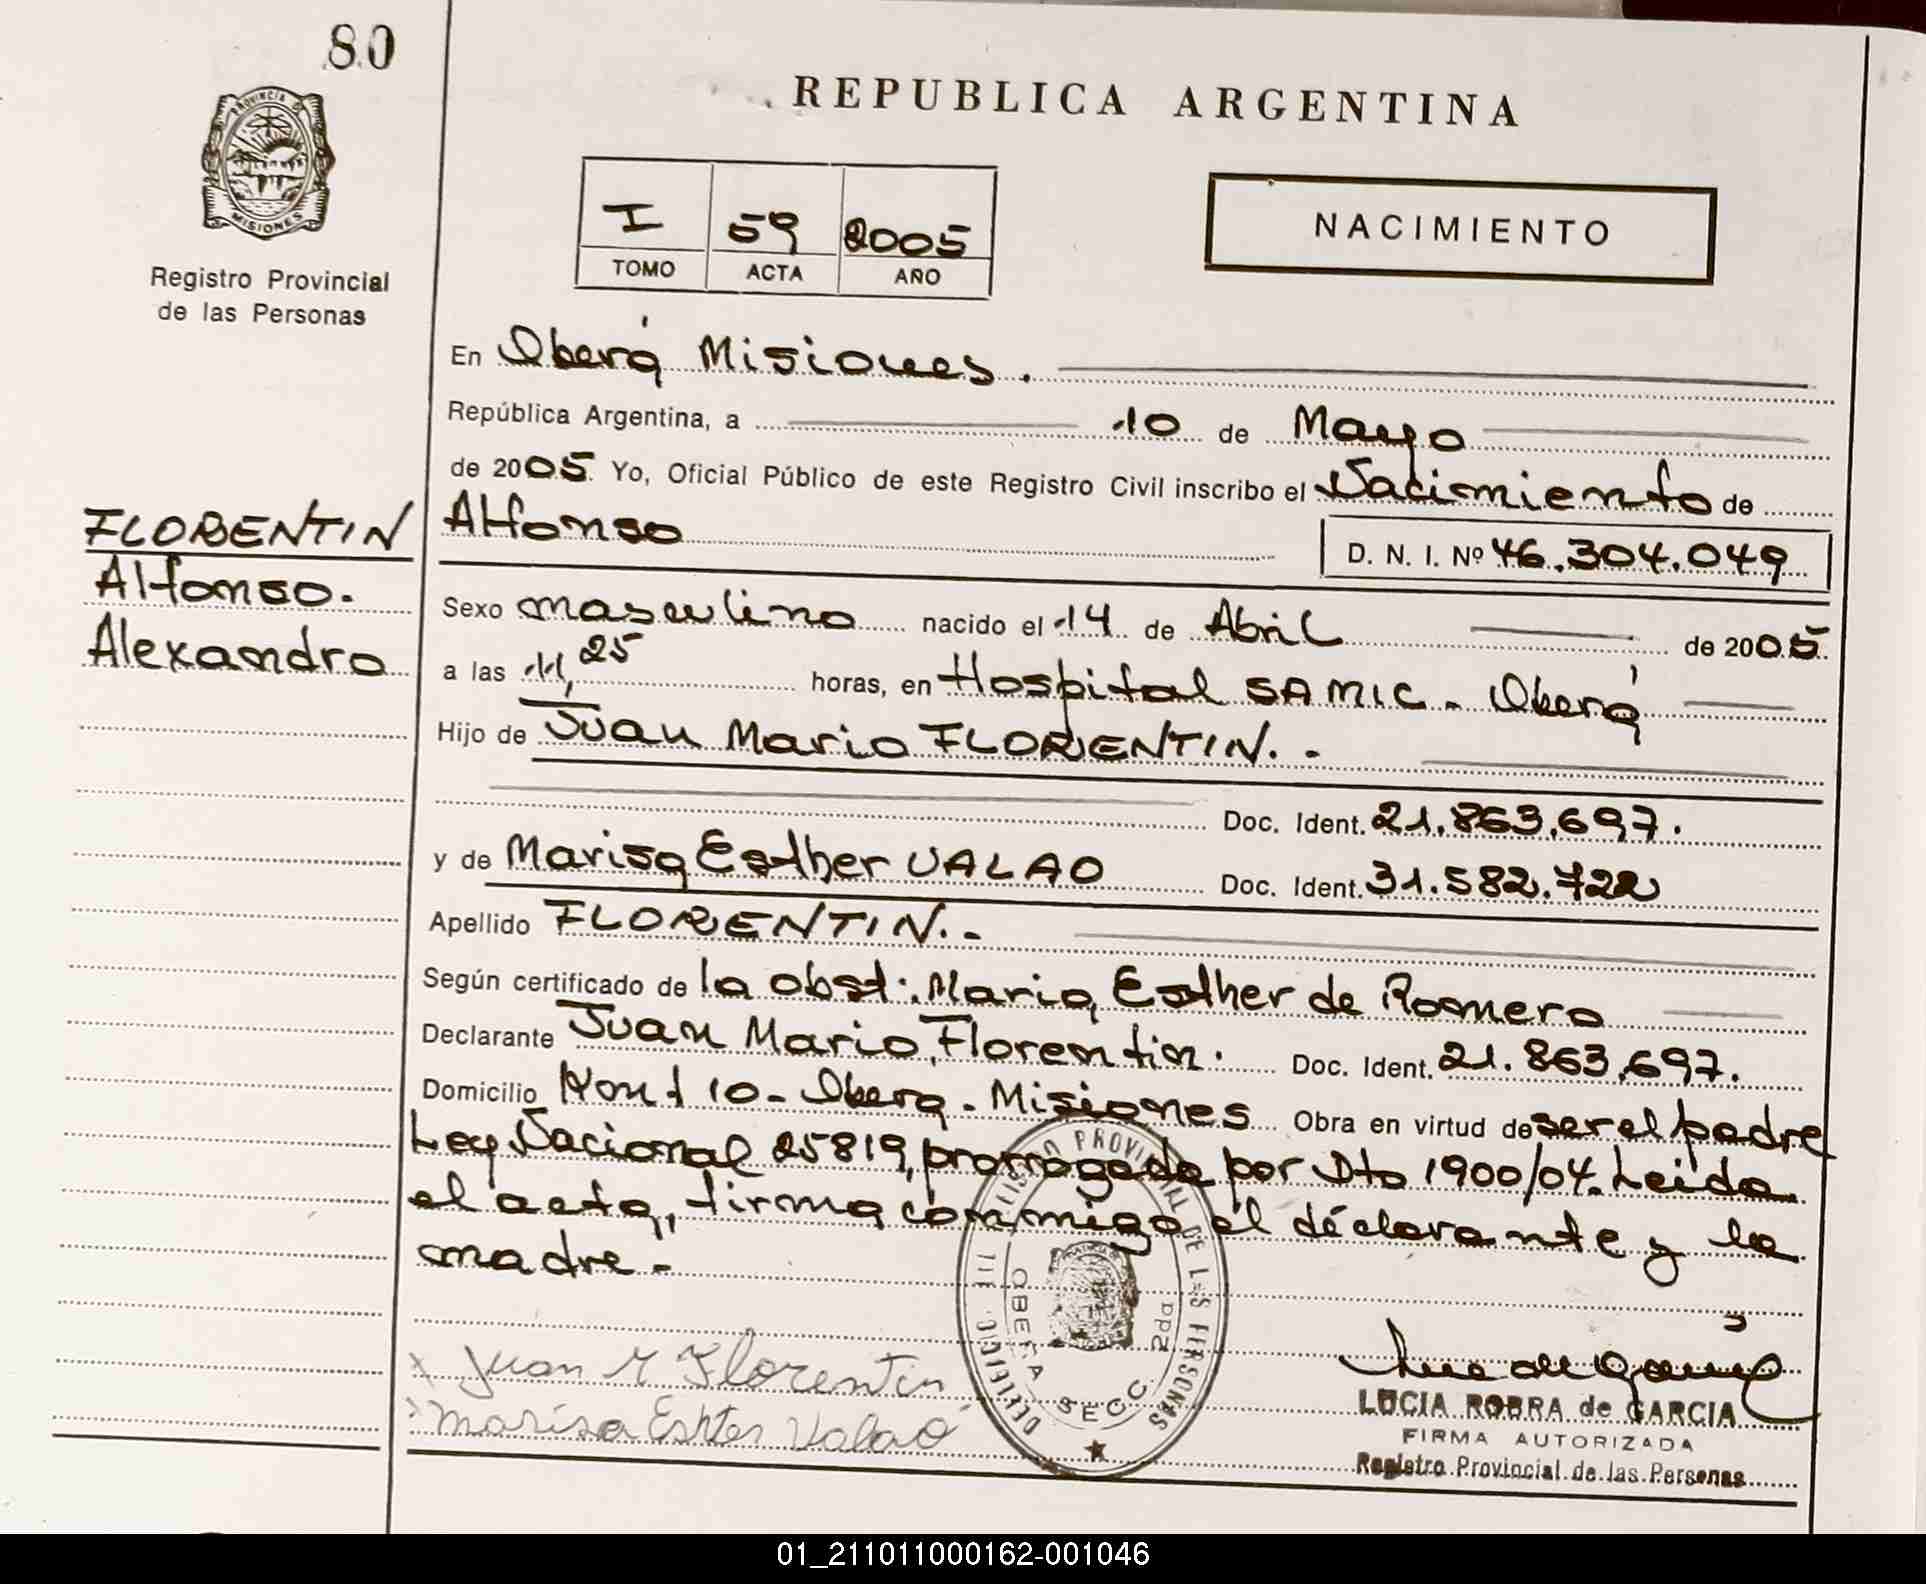 80
REPUBLICA ARGENTINA
PROVINCIA D
MISIONES
Registro Provincial
de las Personas
I 59 2005
TOMO ACTA AÑO
NACIMIENTO
En Oberá Misiones.
República Argentina, a 10 de Mayo
de 2005. Yo, Oficial Público de este Registro Civil inscribo el Nacimiento de
FLORENTIN
Alfonso.
Alexandro
Alfonso
D. N. I. Nº 46.304.049
Sexo masculino nacido el 14 de Abril de 2005.
a las 11,25 horas, en Hospital SAMIC. Oberá
Hijo de Juan Mario FLORENTIN. -
Doc. Ident. 21.863.697.
y de Marisa Esther VALAO Doc. Ident. 31.582.722
Apellido FLORENTIN. -
Según certificado de la obst. Maria Esther de Romero
Declarante Juan Mario Florentin. Doc. Ident. 21.863.697.
Domicilio 10 - Oberá - Misiones Obra en virtud de ser el padre
Ley Nacional 25819, prorrogada por Dto 1900/04. Leida
el acta, firma conmigo el declarante y la
madre -
Juan M Florentin
Marisa Valao
OBERA SECC.
LUCIA ROBRA de GARCIA
FIRMA AUTORIZADA
Registro Provincial de las Personas
01_211011000162-001046